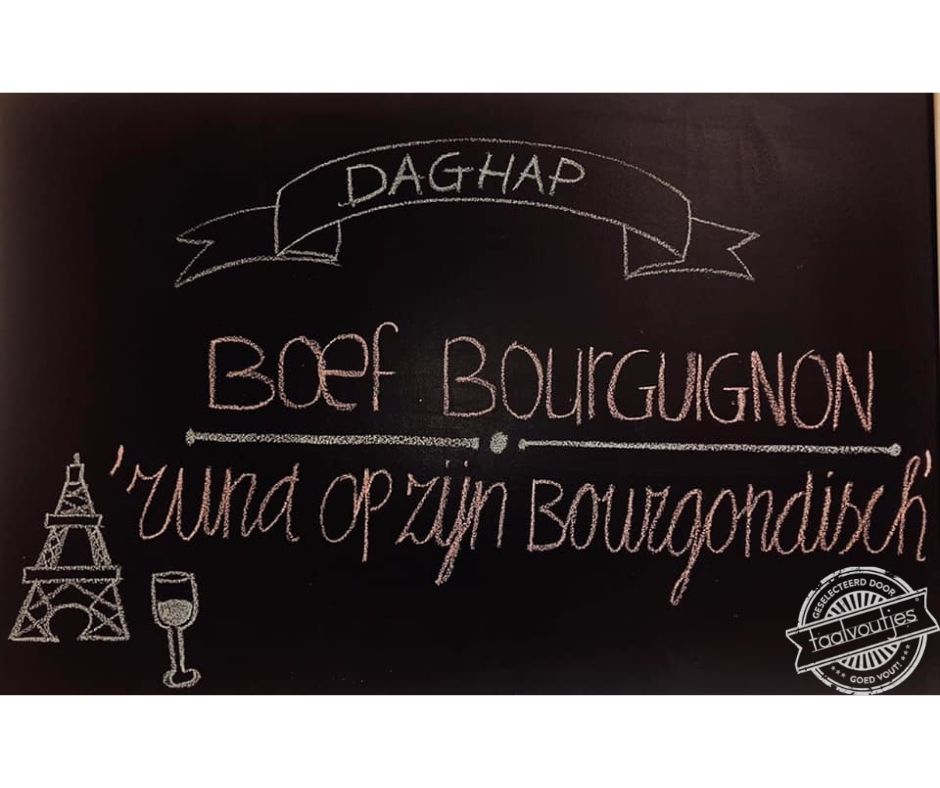 DAGHAP
Bœf Bourguignon
'rund op zijn Bourgondisch'
GESELECTEERD DOOR
taalvoutjes
GOED VOUT!